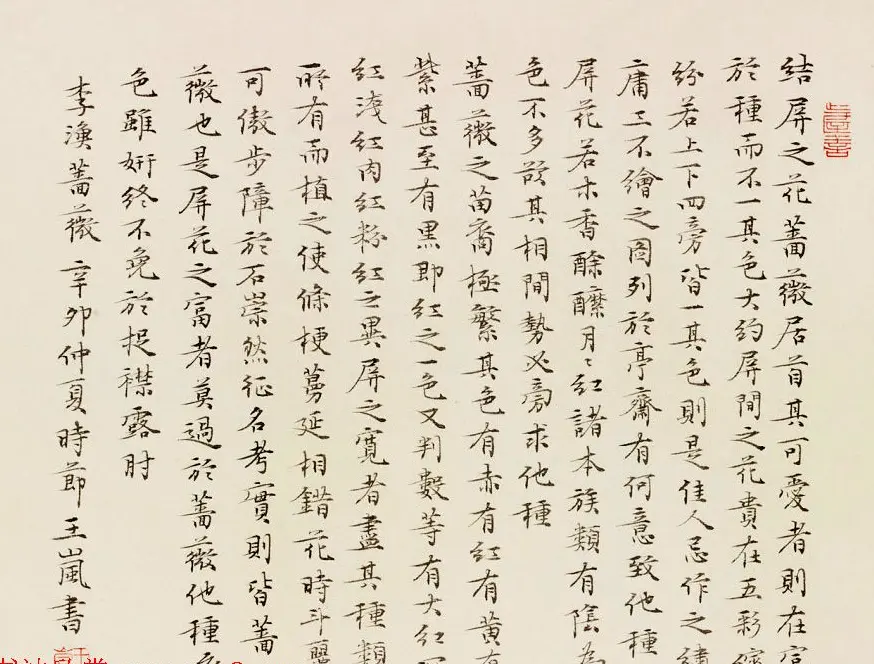 結屏之花薔薇居首其可愛者則在
於種而不一其色大約屏間之花貴在五彩
紛若上下四旁皆一其色則是佳人忌作之
庸工不繪之圖列於亭齋有何意致他種
屏花若木香酴醾月〻紅諸本族類有
色不多欲其相間勢必旁求他種
薔薇之苗裔極繁其色有赤有紅有黄有
紫甚至有黑即紅之一色又判數等有大紅
紅淺紅肉紅粉紅之異屏之寬者盡其種類
所有而植之使條梗蔓延相錯花時斗麗
可傲步障於石崇然征名考實則皆薔
薇也是屏花之富者莫過於薔薇他種
色雖妍終不免於捉襟露肘
李漁薔薇 辛卯仲夏時節王嵐書